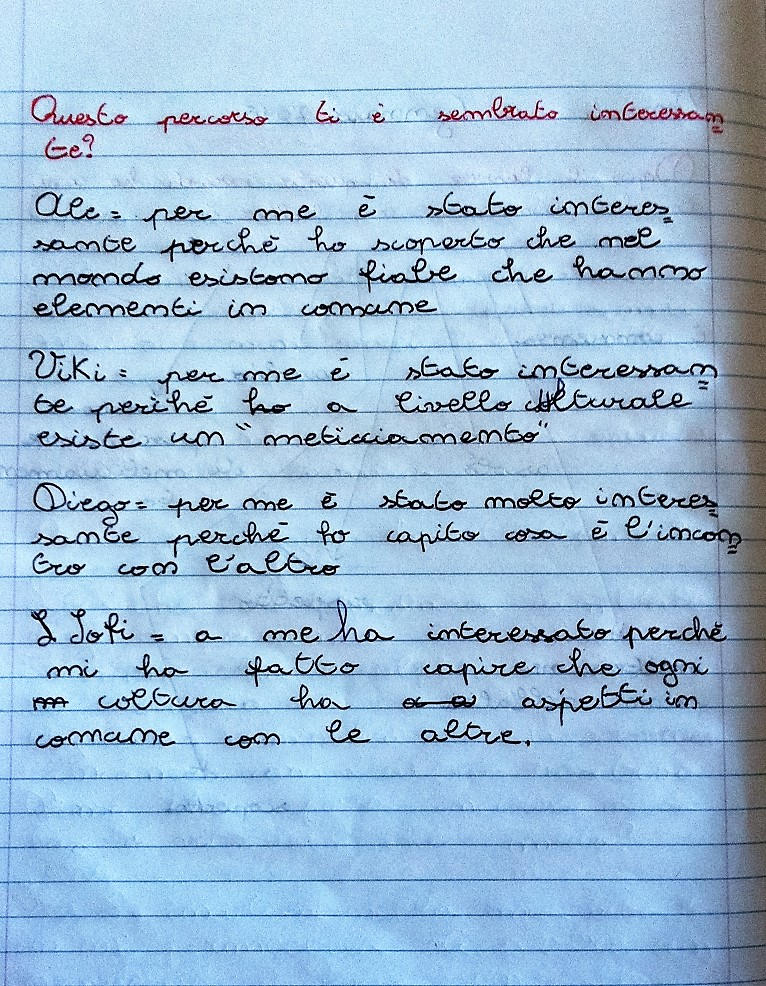 Questo percorso ti è sembrato interessan=
te?
Ale = per me è stato interes=
sante perché ho scoperto che nel
mondo esistono fiabe che hanno
elementi in comune
Viki = per me è stato interessan=
te perché ho a livello culturale
esiste un "meticciamento"
Diego = per me è stato molto interes=
sante perché ho capito cosa è l'incon=
tro con l'altro
Sofi = a me ha interessato perché
mi ha fatto capire che ogni
coltura ha aspetti in
comune con le altre.